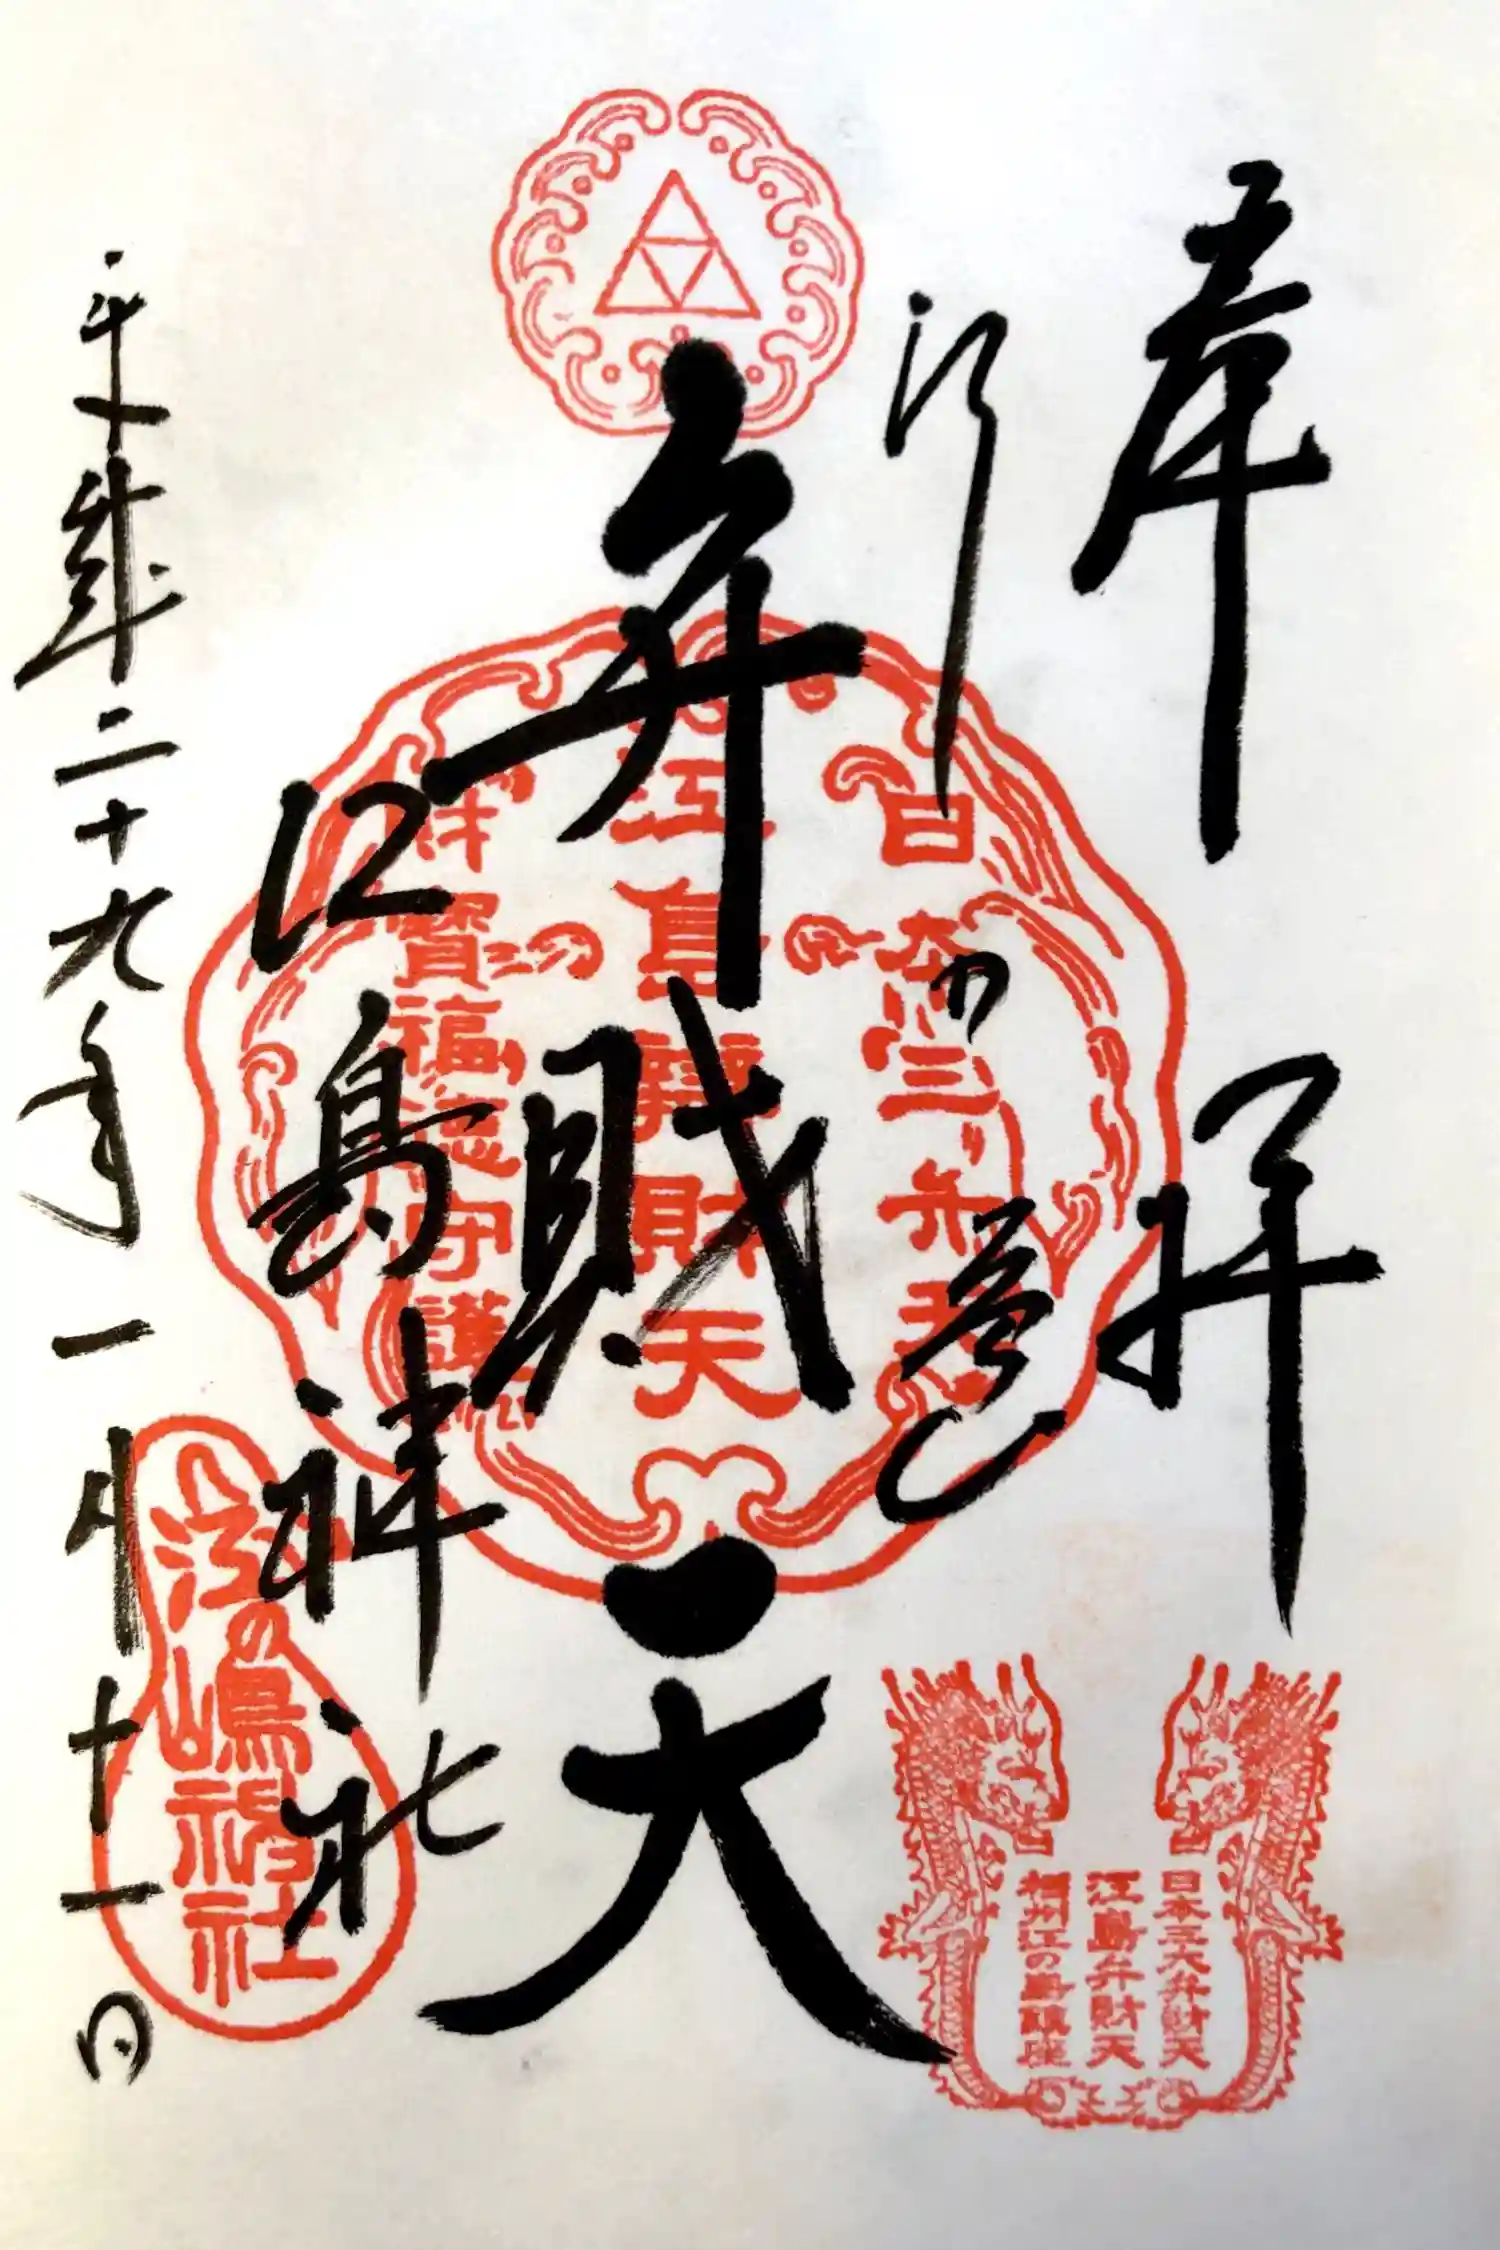 奉拝
江の島
弁財天
江島神社
七
平成二十九年一月十一日
日本三弁天
江島辨財天
財寶福徳守護
江の嶋神社
日本三大弁財天
江島弁財天
相州江の島鎮座